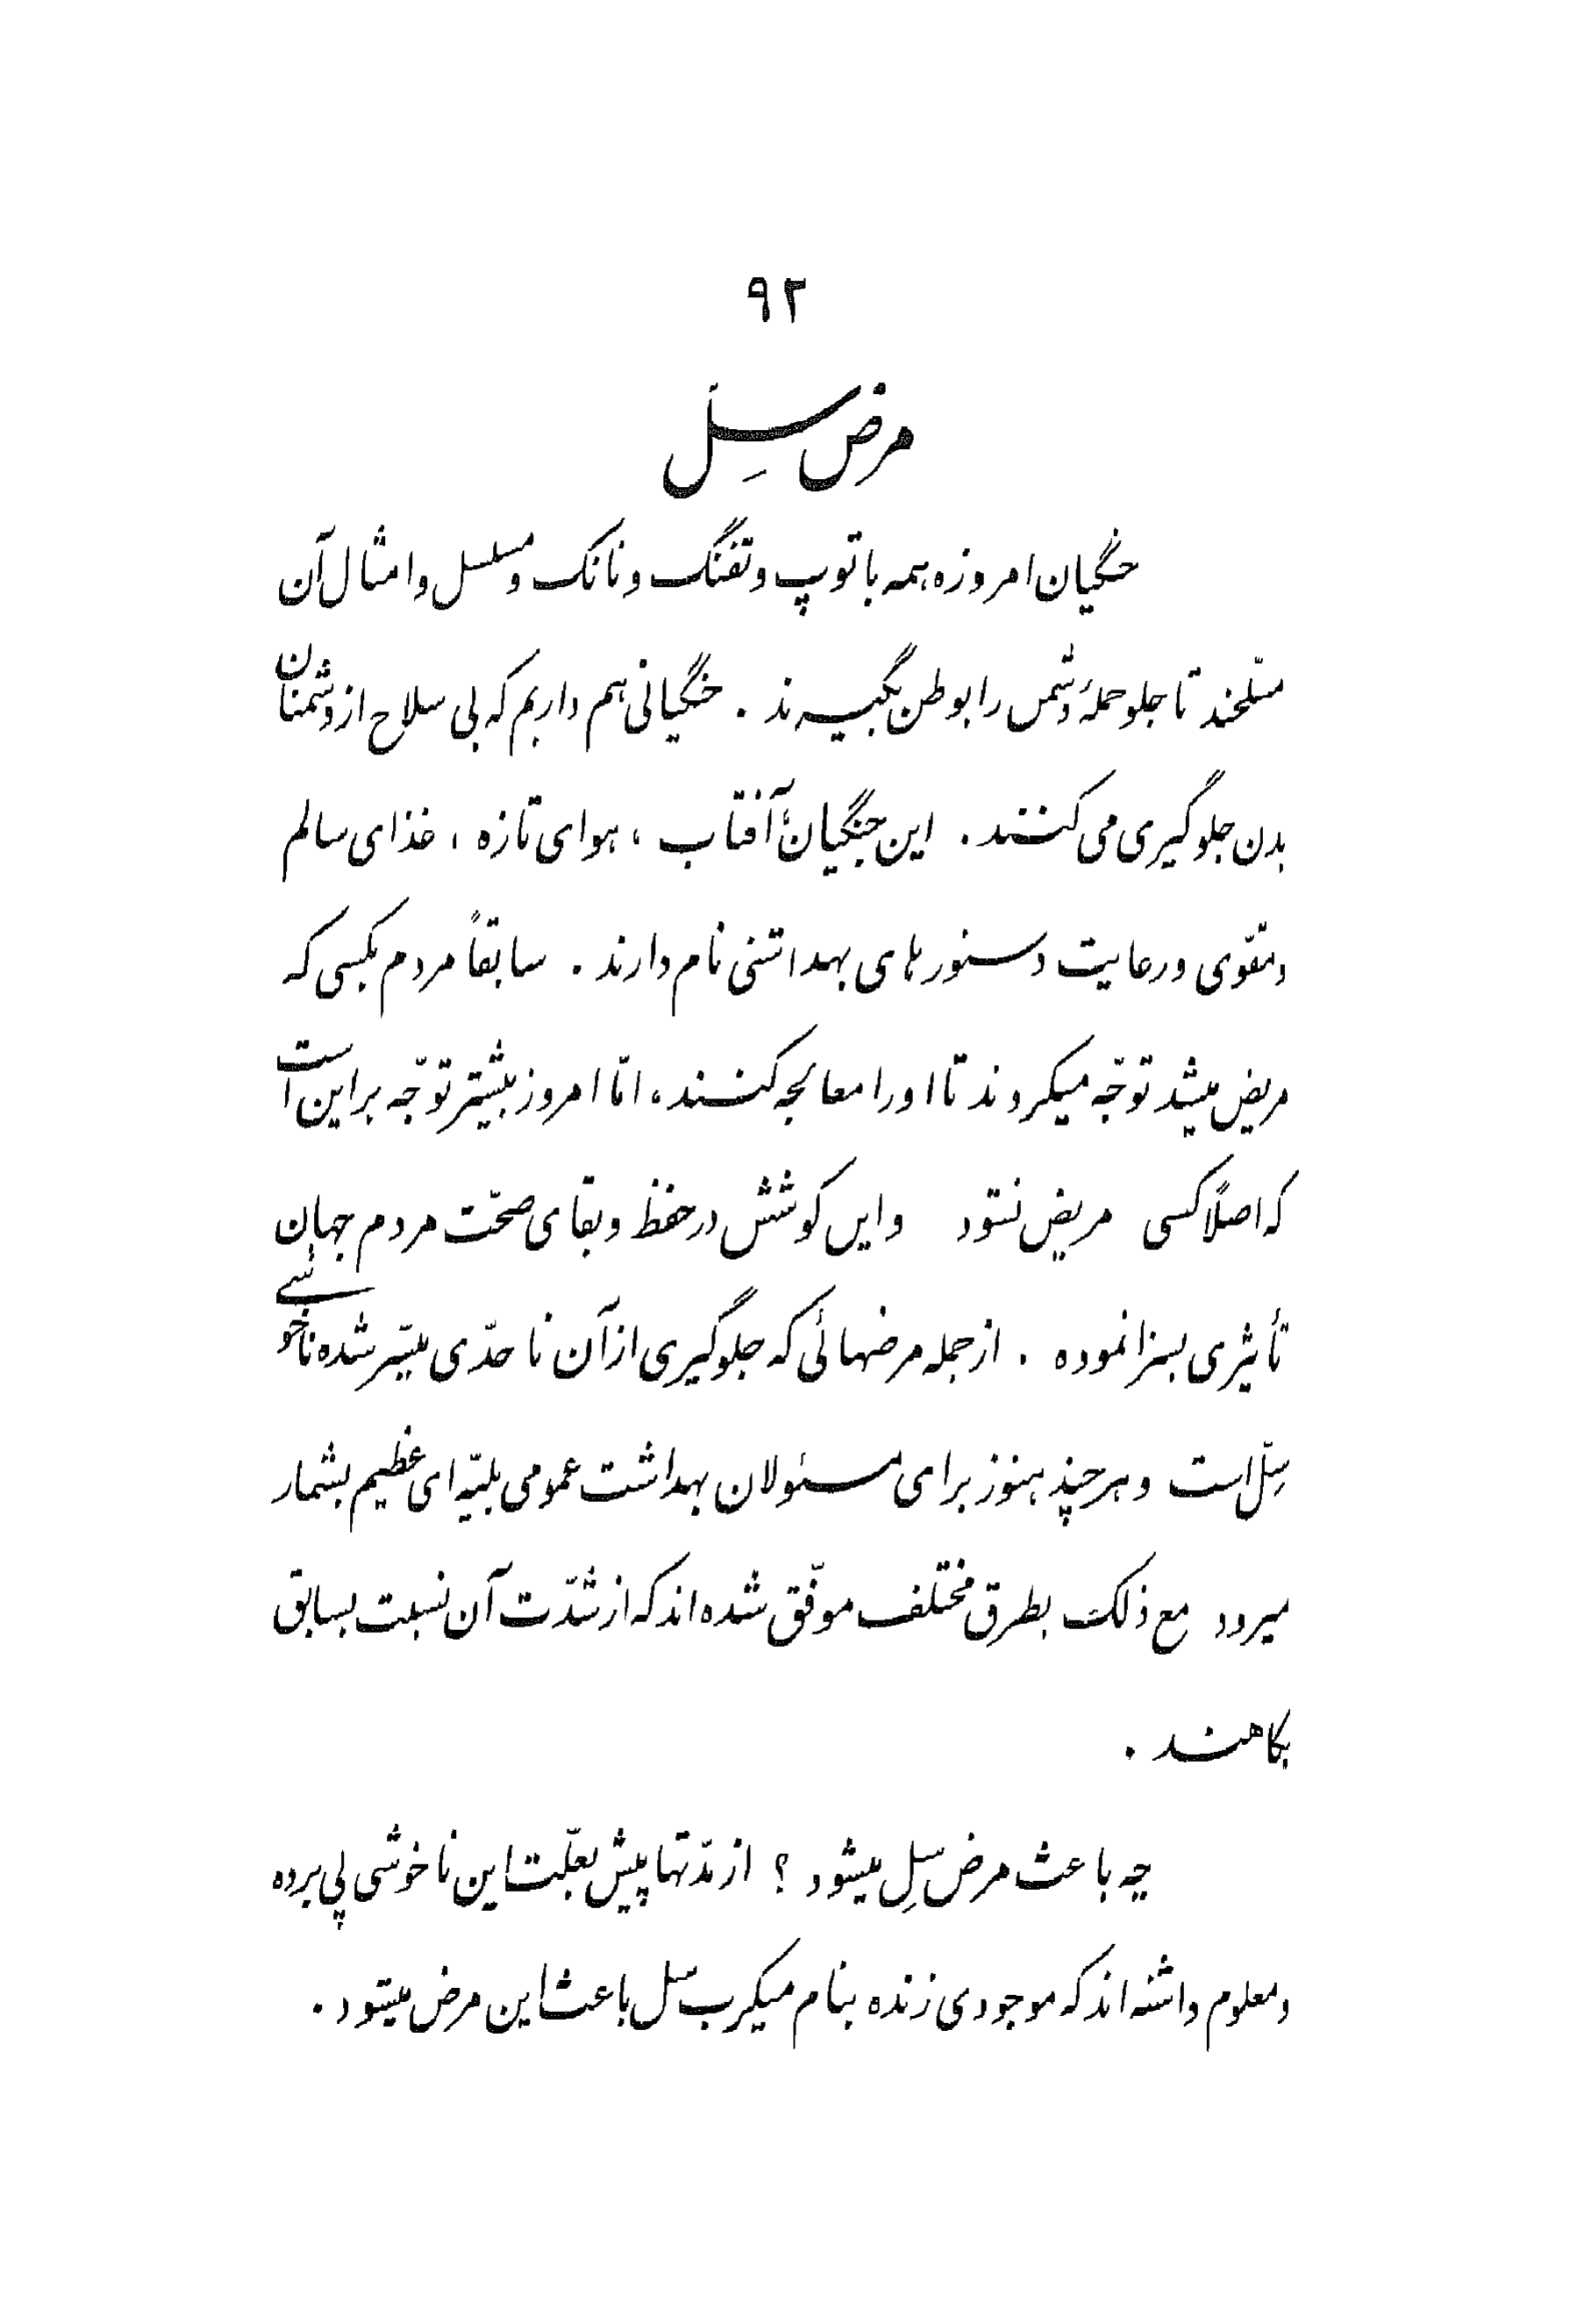 ۹۲
مرض سِل
جنگیان امروزه همه با توپ و تفنگ و تانک و مسلسل و امثال آن
مسلّحند تا جلو حملهٔ دشمن را بوطن بگیرند . جنگیانی هم داریم که بی سلاح از دشمنان
بدن جلوگیری می کنند . این جنگیان آفتاب ، هوای تازه ، غذای سالم
و مقوّی و رعایت دستورهای بهداشتی نام دارند . سابقاً مردم بکسی که
مریض میشد توجّه میکردند تا او را معالجه کنند ، امّا امروز بیشتر توجّه بر این است
که اصلاً کسی مریض نشود و این کوشش در حفظ و بقای صحّت مردم جهان
تأثیری بسزا نموده . از جمله مرضهائی که جلوگیری از آن تا حدّی میسّر شده ناخوشی
سِلّ است و هر چند هنوز برای مسئولان بهداشت عمومی بلیّه ای عظیم بشمار
میرود مع ذلک بطرق مختلف موفّق شده اند که از شدّت آن نسبت بسابق
بکاهند .
چه باعث مرض سِل میشود ؟ از مدّتها پیش بعلّت این ناخوشی پی برده
و معلوم داشته اند که موجودی زنده بنام میکرب سل باعث این مرض میشود .